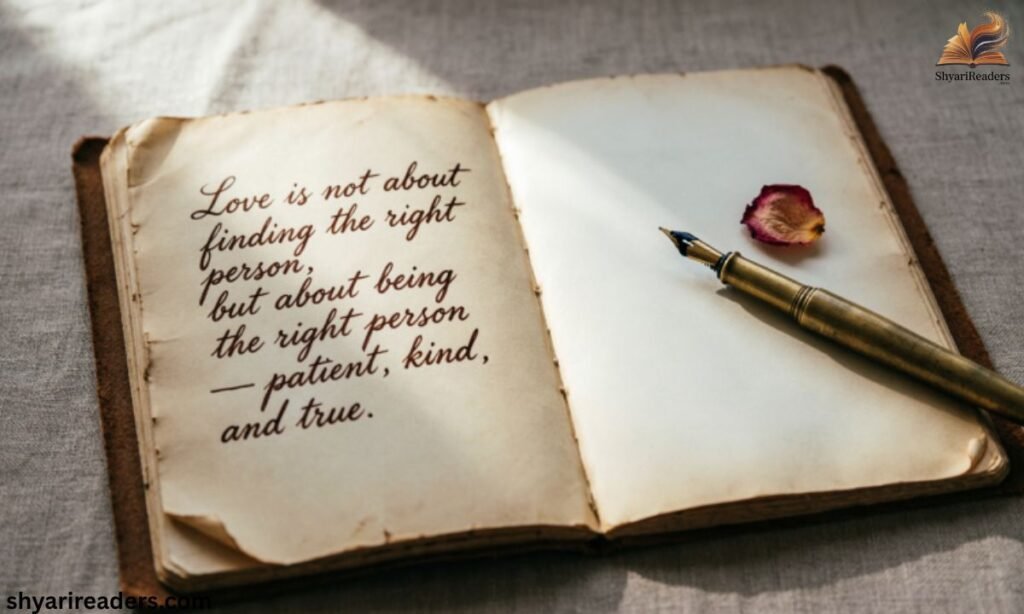 ShyariReaders
Love is not about
finding the right
person,
but about being
the right person
— patient, kind,
and true.
shyarireaders.com